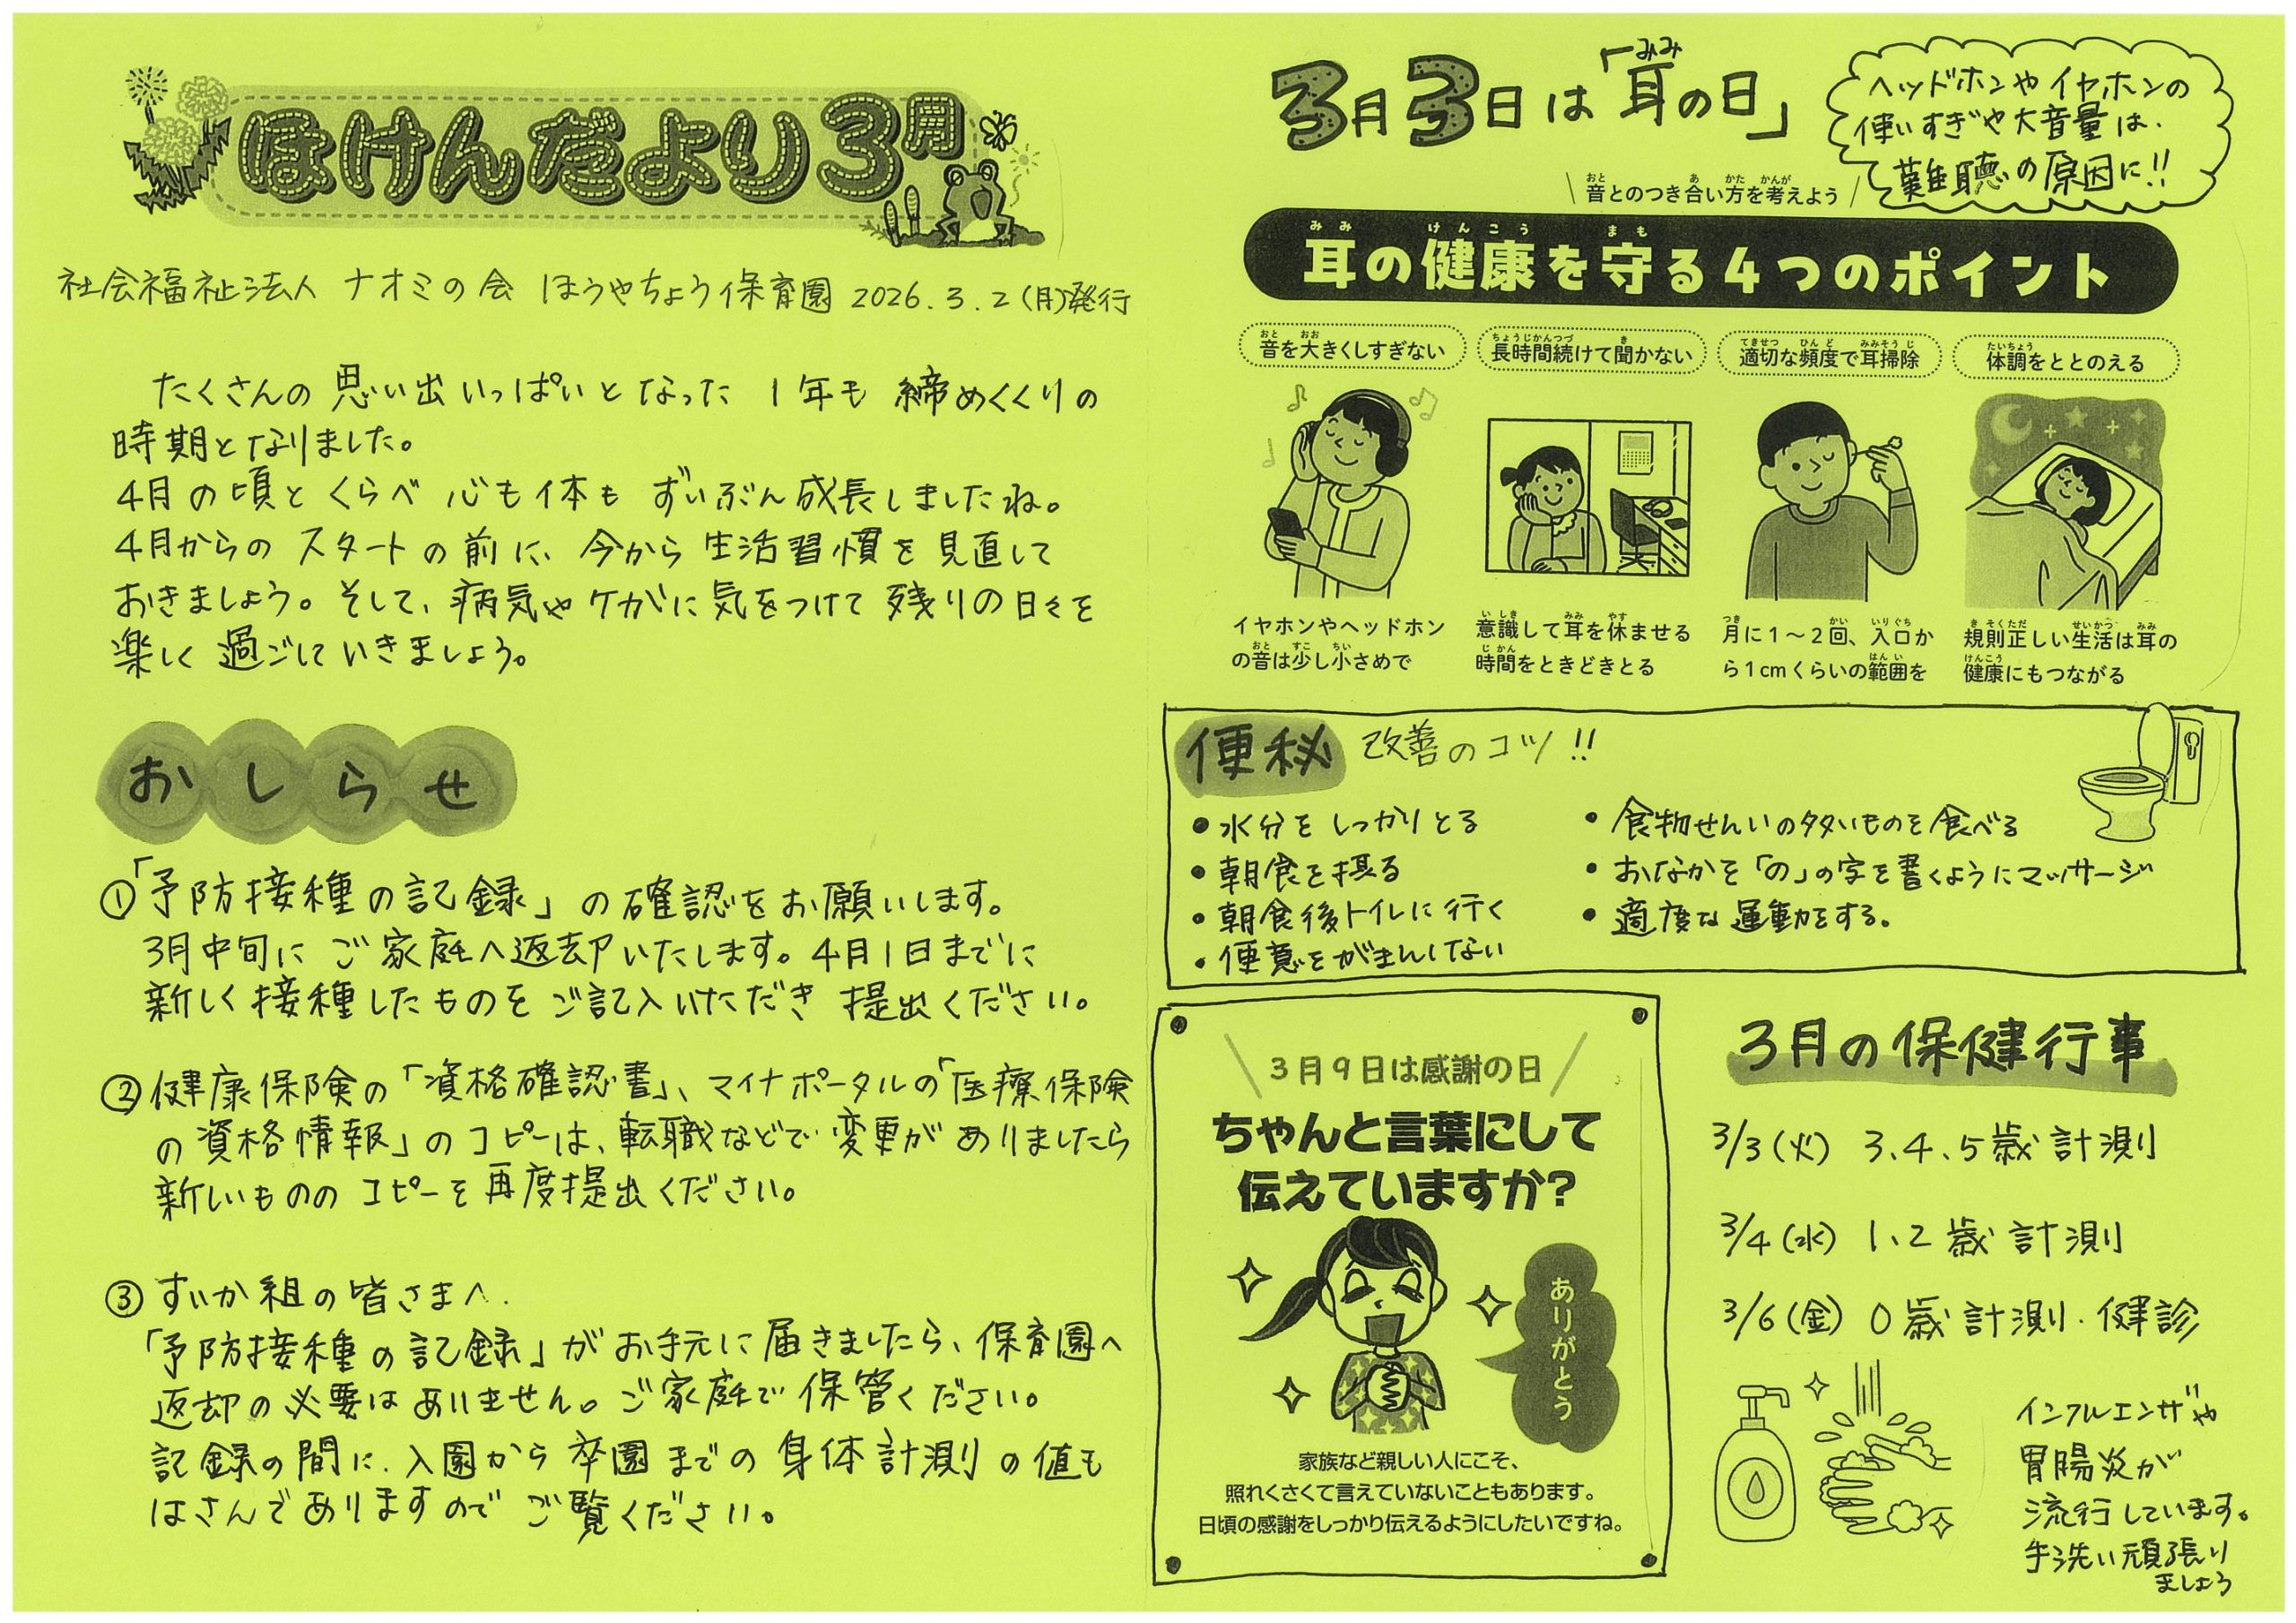 ほけんだより3月
社会福祉法人 ナオミの会 ほうやちょう保育園 2026.3.2(月)発行
たくさんの思い出いっぱいとなった1年も締めくくりの
時期となりました。
4月の頃とくらべ心も体もずいぶん成長しましたね。
4月からのスタートの前に、今から生活習慣を見直して
おきましょう。そして、病気やケガに気をつけて残りの日々を
楽しく過ごしていきましょう。
おしらせ
①「予防接種の記録」の確認をお願いします。
3月中旬にご家庭へ返却いたします。4月1日までに
新しく接種したものをご記入いただき提出ください。
②健康保険の「資格確認書」、マイナポータルの「医療保険
の資格情報」のコピーは、転職などで変更がありましたら
新しいもののコピーを再度提出ください。
③すいか組の皆さまへ.
「予防接種の記録」がお手元に届きましたら、保育園へ
返却の必要はありません。ご家庭で保管ください。
記録の間に、入園から卒園までの身体計測の値も
はさんでありますのでご覧ください。
3月3日は「耳の日」
みみ
ヘッドホンやイヤホンの
使いすぎや大音量は、
難聴の原因に!!
\ 音とのつき合い方を考えよう /
おと あ かた かんが
耳の健康を守る4つのポイント
みみ けんこう まも
音を大きくしすぎない
おと おお
長時間続けて聞かない
ちょうじかんつづ き
適切な頻度で耳掃除
てきせつ ひんど みみそうじ
体調をととのえる
たいちょう
イヤホンやヘッドホン
の音は少し小さめで
おと すこ ちい
意識して耳を休ませる
いしき みみ やす
時間をときどきとる
じかん
月に1～2回、入口か
つき かい いりぐち
ら1cmくらいの範囲を
はんい
規則正しい生活は耳の
きそくただ せいかつ みみ
健康にもつながる
けんこう
便秘 改善のコツ!!
●水分をしっかりとる
●朝食を摂る
●朝食後トイレに行く
●便意をがまんしない
●食物せんいの多いものを食べる
●おなかを「の」の字を書くようにマッサージ
●適度な運動をする。
\ 3月9日は感謝の日 /
ちゃんと言葉にして
伝えていますか?
ありがとう
家族など親しい人にこそ、
照れくさくて言えていないこともあります。
日頃の感謝をしっかり伝えるようにしたいですね。
3月の保健行事
3/3(火) 3、4、5歳計測
3/4(水) 1、2歳計測
3/6(金) 0歳計測・健診
インフルエンザや
胃腸炎が
流行しています。
手洗い頑張り
ましょう